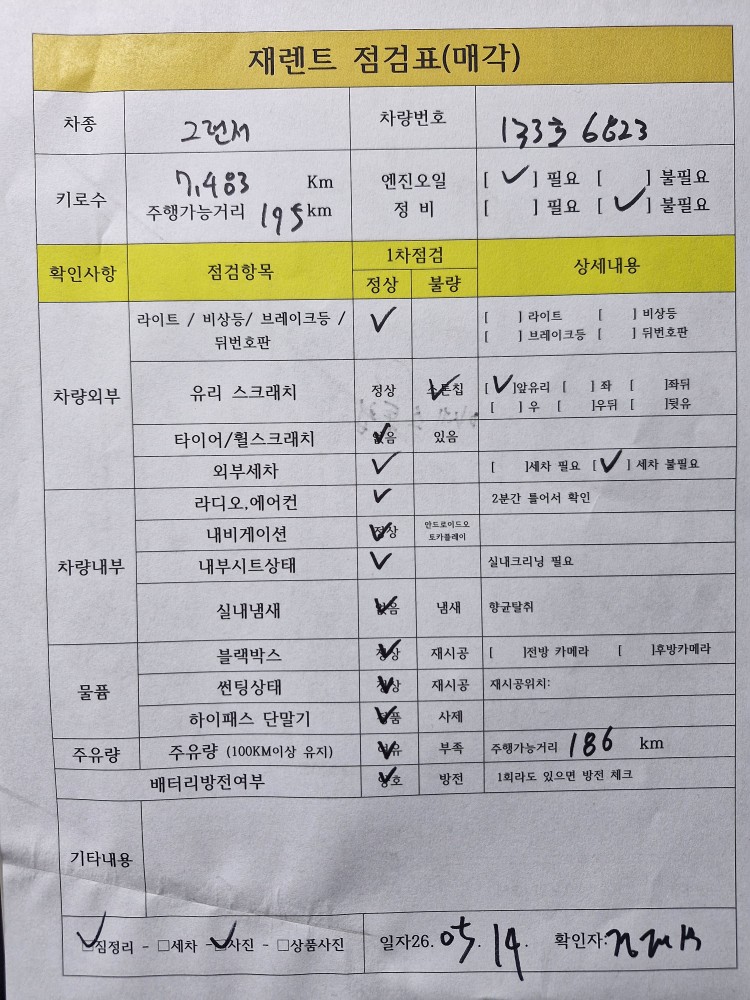 재렌트 점검표(매각)
차종 그런저 차량번호 133호 6623
키로수 7,483 Km 엔진오일 [ ✓ ] 필요 [ ] 불필요
주행가능거리 195 km 정비 [ ] 필요 [ ✓ ] 불필요
확인사항 점검항목 1차점검 상세내용
정상 불량
차량외부 라이트 / 비상등/ 브레이크등 / 뒤번호판 ✓ [ ] 라이트 [ ] 비상등
[ ] 브레이크등 [ ] 뒤번호판
유리 스크래치 정상 스톤칩 ✓ [ ✓ ]앞유리 [ ] 좌 [ ]좌뒤
[ ] 우 [ ]우뒤 [ ]뒷유
타이어/휠스크래치 없음 ✓ 있음
외부세차 ✓ [ ]세차 필요 [ ✓ ] 세차 불필요
차량내부 라디오,에어컨 ✓ 2분간 틀어서 확인
내비게이션 정상 ✓ 안드로이드오토카플레이
내부시트상태 ✓ 실내크리닝 필요
실내냄새 없음 ✓ 냄새 향균탈취
물품 블랙박스 정상 ✓ 재시공 [ ]전방 카메라 [ ]후방카메라
썬팅상태 정상 ✓ 재시공 재시공위치:
하이패스 단말기 ✓ 사제
주유량 주유량 (100KM이상 유지) 여유 ✓ 부족 주행가능거리 186 km
배터리방전여부 양호 ✓ 방전 1회라도 있으면 방전 체크
기타내용
✓ □짐정리 - □세차 - ✓ □사진 - □상품사진 일자26. 05. 14. 확인자: